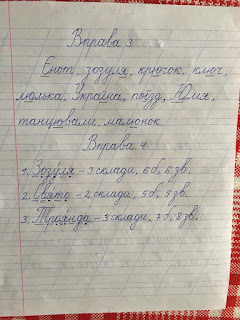 Вправа 3
Енот, зозуля, крючок, ключ,
люлька, Україна, поїзд, Юлія,
танцювали, малюнок.
Вправа 4
1. Зозуля – 3 склади, 6 б, 6 зв.
2. Свято – 2 склади, 5 б, 5 зв.
3. Троянда – 3 склади, 7 б, 8 зв.